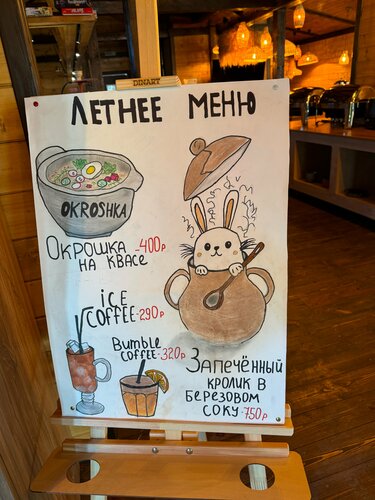 DINART
ЛЕТНЕЕ МЕНЮ
OKROSHKA
ОКРОШКА -400Р
НА КВАСЕ
ICE
COFFEE-290Р
Bumble
COFFEE-320Р
ЗАПЕЧЁННЫЙ
КРОЛИК В
БЕРЕЗОВОМ
СОКУ-750Р